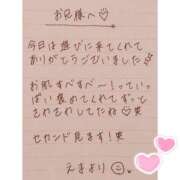 お兄様へ♡
今日は遊びに来てくれて
ありがとうございました
お肌すべすべ〜!っていっ
ぱい褒めてくれてずっと
さわさわしてたね😊笑
セカンド見ます!笑
えまより☺